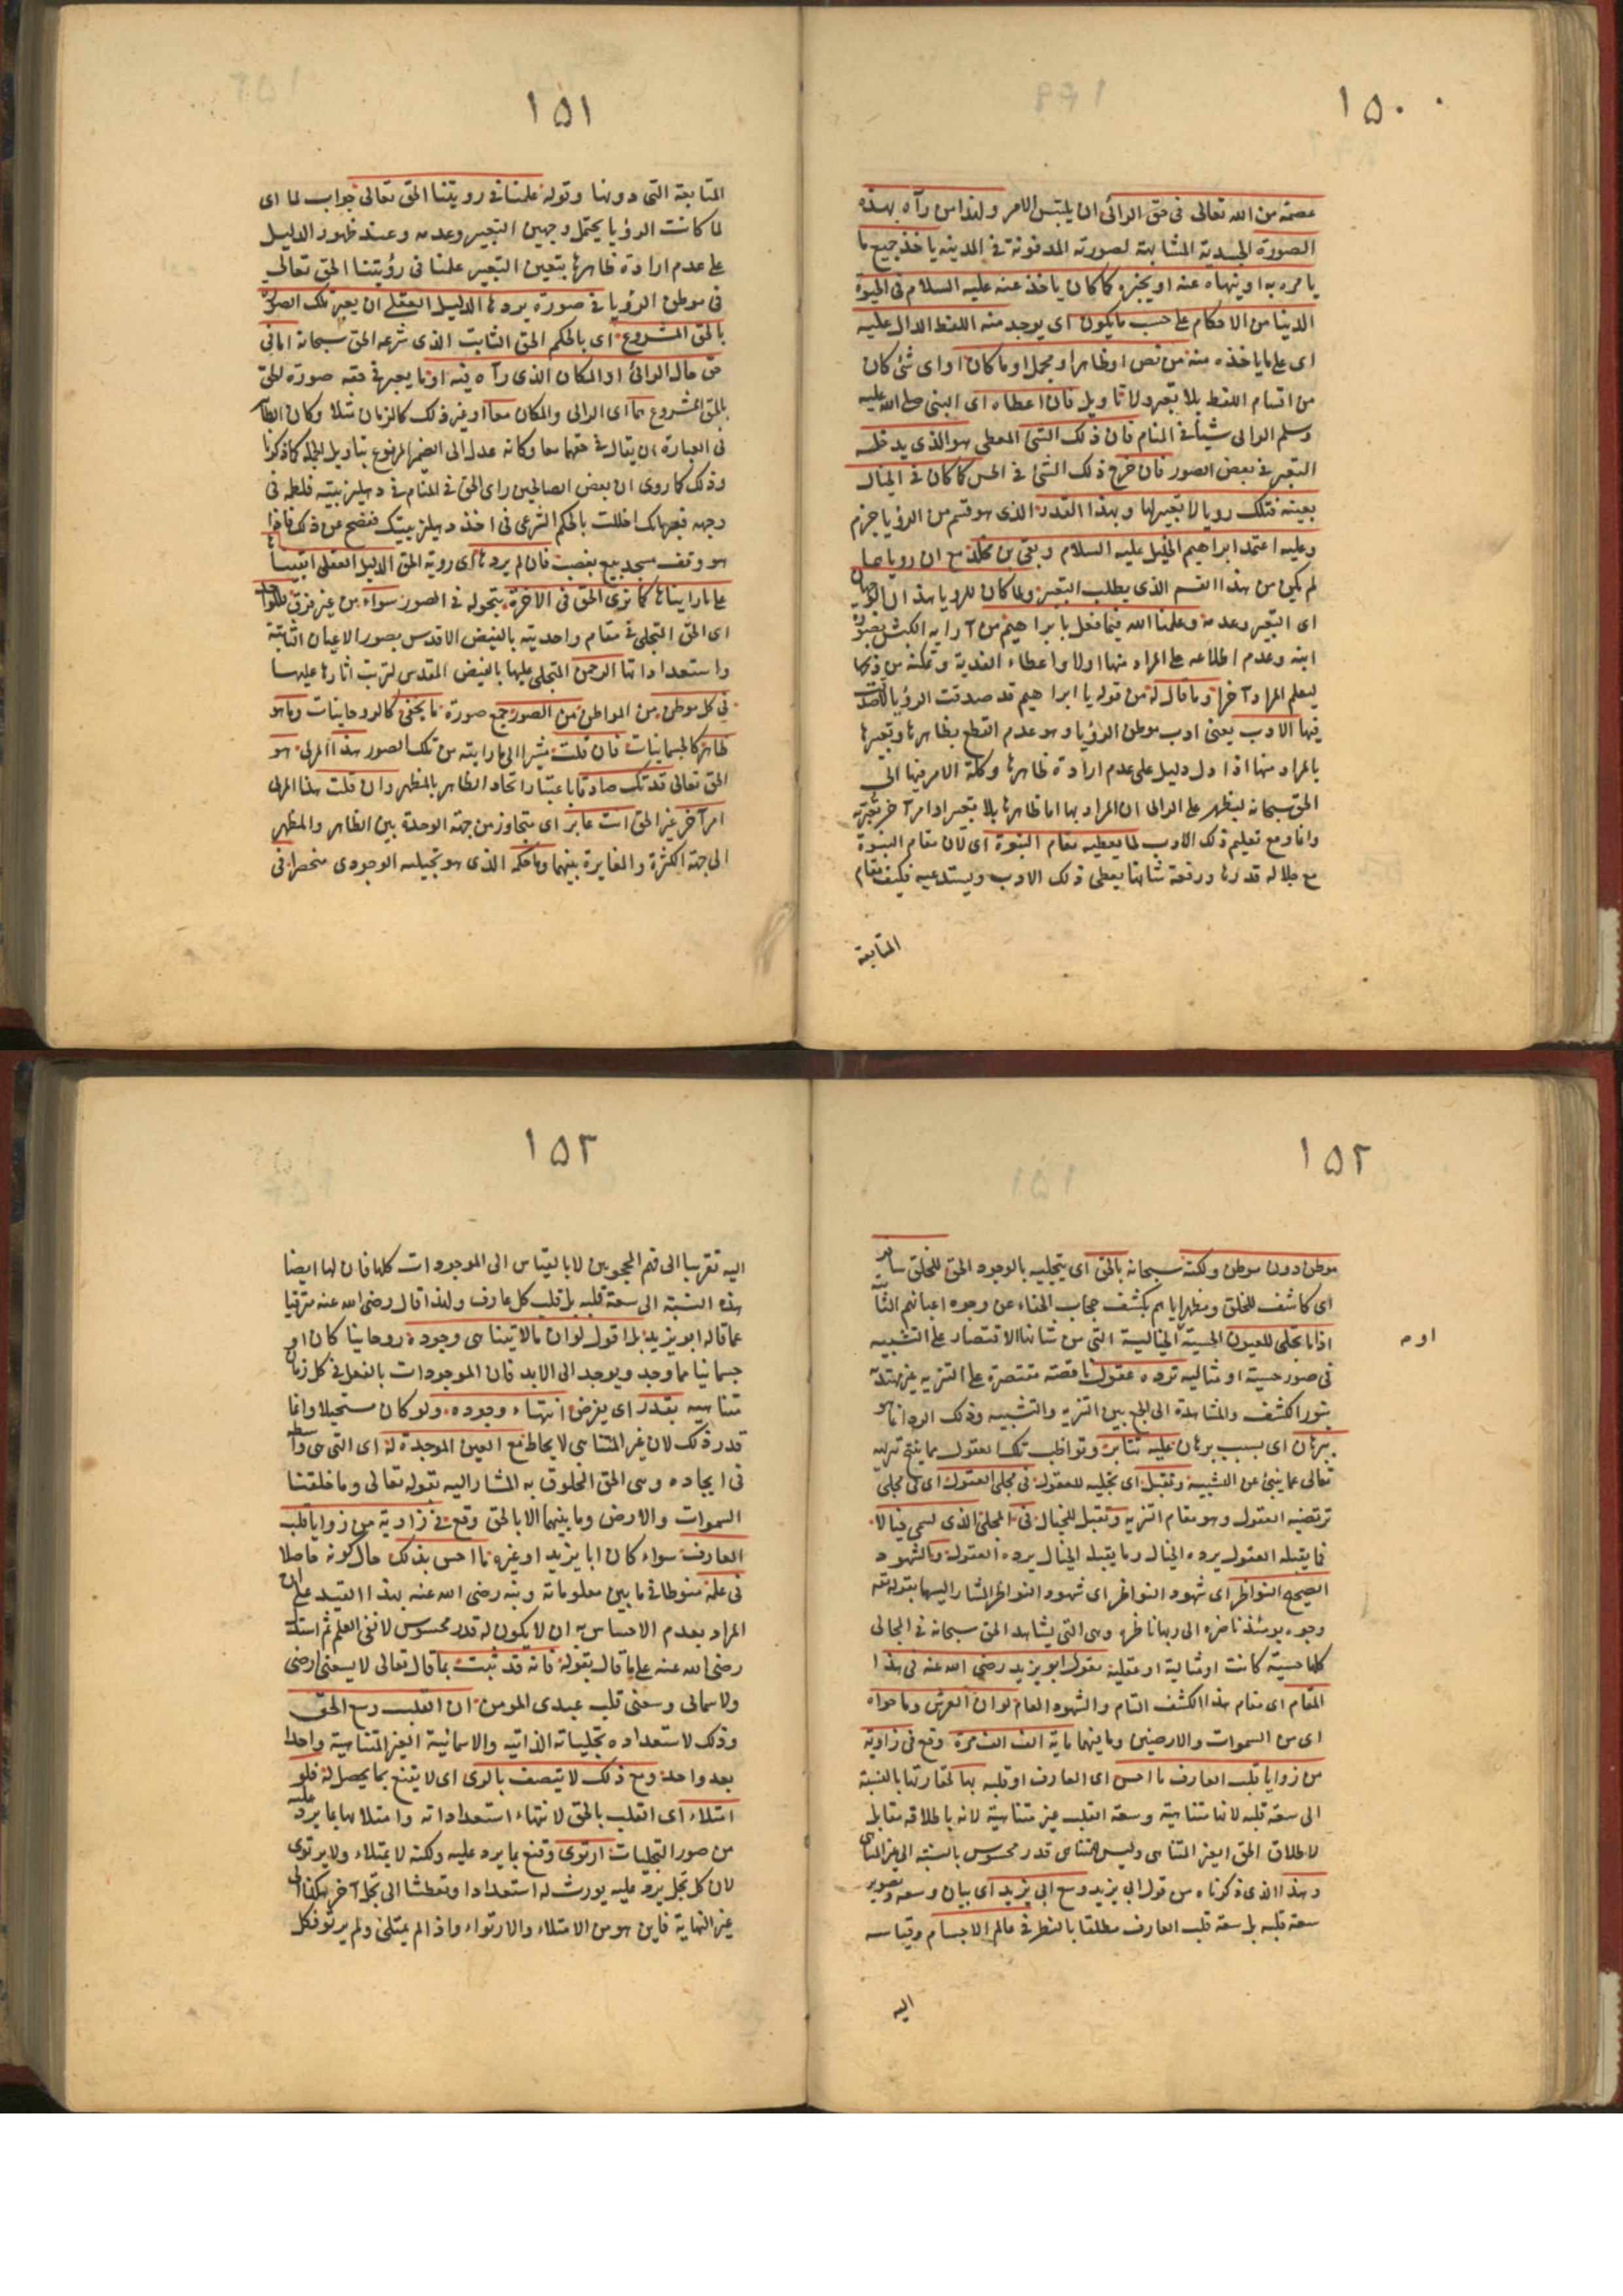 ١٥٠
عصمة من الله تعالى فى حق الرائى ان يلتبس الامر ولهذا من رآه بهذه
الصورة الجسدية المشابهة لصورته المدفونة فى المدينه ياخذ جميع ما
يامره به او ينهاه عنه او يخبره كما كان ياخذ عنه عليه السلام فى الحيوة
الدنيا من الاحكام على حسب ما يكون اى يوجد منه اللفظ الدال عليه
اى على ما ياخذه منه من نص او ظاهر او مجمل او ما كان او اى شئ كان
من اقسام اللفظ بلا تعبير ولا تاويل فان اعطاه اى النبى صلى الله عليه
وسلم الرائى شيأ فى المنام فان ذلك الشئ المعطى هو الذى يدخله
التعبير فى بعض الصور فان خرج ذلك الشئ فى الحس كما كان فى الخيال
بعينه فتلك رويا لا تعبير لها وبهذا القدر الذى هو قسم من الرؤيا جزم
وعليه اعتمد ابراهيم الخليل عليه السلام وبقى بن مخلد مع ان روياهما
لم يكن من هذا القسم الذى يطلب التعبير ولما كان للرويا هذان الوجهان
اى التعبير وعدمه وعلمنا الله فيما فعل بابراهيم من آراية الكبش بصورة
ابنه وعدم اطلاعه على المراد منها اولا واعطاء الفدية وتمكينه من ذبحها
ليعلم المراد آخرا وما قال له من قوله يا ابراهيم قد صدقت الرؤيا
فيها الادب يعنى ادب موطن الرؤيا وهو عدم القطع بظاهرها وتعبيرها
بالمراد منها اذا دل دليل على عدم ارادة ظاهرها وكلة الامر فيها الى
الحق سبحانه ليظهر على الرائى ان المراد بها اما ظاهرها بلا تعبير او امر آخر
وانما وقع تعليم ذلك الادب لما يعطيه مقام النبوة اى لان مقام النبوة
مع جلاله قدرها ورفعة شانها يعطى ذلك الادب ويستدعيه فكيف مقام
المتابعة
١٥١
المتابعة التى دونها وقوله علمنا فى رويتنا الحق تعالى جواب لما اى
لما كانت الرؤيا يحتمل وجهين التعبير وعدمه وعند ظهور الدليل
على عدم ارادة ظاهرها بتعين التعبير علمنا فى رؤيتنا الحق تعالى
فى موطن الرؤيا فى صورة يردها الدليل العقلى ان يعبر تلك الصورة
بالحق المشروع اى بالحكم الحق الثابت الذى شرعه الحق سبحانه اما فى
حق حال الرائى او المكان الذى رآه فيه او ما يعبر فى حقه صورة الحق
بالحق المشروع هما اى الرائى والمكان معا او غير ذلك كالزمان مثلا وكان الظاهر
فى العبارة ان يقال فى حقهما معا وكانه عدل الى الضمير المرفوع بتاويل الجملة كما ذكرنا
وذلك كما روى ان بعض الصالحين راى الحق فى المنام فى دهليز بيته فلطمه فى
وجهه فعبرها بك اخللت بالحكم الشرعى فى اخذ دهليز بيتك ففحص عن ذلك فاذا
هو وقف مسجد بيع بغصب فان لم يردها اى روية الحق الدليل العقلى ابقيناها
على ما رايناها كما نرى الحق فى الاخرة بتحوله فى الصور سواء من غير فرق
اى الحق المتجلى فى مقام واحديته بالفيض الاقدس بصور الاعيان الثابتة
واستعداداتها الرحمن المتجلى عليها بالفيض المقدس لترتب اثارها عليها
فى كل موطن من المواطن من الصور جمع صورة ما يخفى كالروحانيات وما هو
ظاهر كالجسمانيات فان قلت مشيرا الى ما رايته من تلك الصور هذا المرئى هو
الحق تعالى قد تك صادقا باعتبار اتحاد الظاهر بالمظهر وان قلت هذا المرئى
امر آخر غير الحق انت عابر اى متجاوز من جهة الوحدة بين الظاهر والمظهر
الى جهة الكثرة والمغايرة بينهما وما حكمه الذى هو تجليه الوجودى منحصرا فى
١٥٢
موطن دون موطن ولكنه سبحانه بالحق اى بتجليه بالوجود الحق للخلق سافر
اى كاشف للخلق ومظهر اياهم بكشف حجاب الخفاء عن وجوه اعيانهم الثابتة
اذا ما تجلى للعيون الحسية الخيالية التى من شانها الاقتصار على التشبيه
او م
فى صور حسية او مثاليه ترده عقول ناقصة مقتصرة على التنزيه غير مهتدية
بنور الكشف والمشاهدة الى الجمع بين التنزيه والتشبيه وذلك الرد انما هو
ببرهان اى بسبب برهان عليه تثابر وتواظب تلك العقول مما ينتج تنزيهه
تعالى عما ينبئ عن التشبيه وتقبل اى تجليه للعقول فى مجلى العقول اى فى مجلى
ترتضيه العقول وهو مقام التنزيه وتقبل للخيال فى المجلى الذى يسمى خيالا
فما يقبله العقول يرده الخيال وما يقبله الخيال يرده العقول والشهود
الصحيح النواظر اى شهود النواظر اى شهود النواظر المشار اليها بقوله تعه
وجوه يومئذ ناضره الى ربها ناظره وهى التى يشاهد الحق سبحانه فى المجالى
كلها حسية كانت او مثالية او عقلية يقول ابو يزيد رضى الله عنه فى هذا
المقام اى مقام هذا الكشف التام والشهود العام لو ان العرش وما حواه
اى من السموات والارضين وما بينهما ماية الف الف مرة وقع فى زاوية
من زوايا قلب العارف ما احس اى العارف او قلبه بها لحقارتها بالنسبة
الى سعة قلبه لانها متناهية وسعة القلب غير متناهية لانه باطلاقه مقابل
لاطلاق الحق الغير المتناهى وليس للمتناهى قدر محسوس بالنسبة الى غير المتناهى
وهذا الذى ذكرناه من قول ابى يزيد وسع ابى يزيد اى بيان وسعه وتصوير
سعة قلبه بل سعة قلب العارف مطلقا بالنظر فى عالم الاجسام وقياسه
اليه
١٥٣
اليه تقريبا الى فهم المحجوبين لا بالقياس الى الموجودات كلها فان لها ايضا
هذه النسبة الى سعة قلبه بل قلب كل عارف ولهذا قال رضى الله عنه مترقيا
عما قاله ابو يزيد بل اقول لو ان ما لا يتناهى وجوده روحانيا كان او
جسمانيا مما وجد ويوجد الى الابد فان الموجودات بالفعل فى كل زمان
متناهيه يقدر اى يفرض انتهاء وجوده ولو كان مستحيلا وانما
قدر ذلك لان غير المتناهى لا يحاط مع العين الموجدة له اى التى هى واسطة
فى ايجاده وهى الحق المخلوق به المشار اليه بقوله تعالى وما خلقنا
السموات والارض وما بينهما الا بالحق وقع فى زاوية من زوايا قلب
العارف سواء كان ابا يزيد او غيره ما احس بذلك حال كونه حاصلا
فى علمه منوطا فى ما بين معلوماته ونبه رضى الله عنه بهذا القيد على ان
المراد بعدم الاحساس به ان لا يكون له قدر محسوس لا نفى العلم ثم استدل
رضى الله عنه على ما قال بقوله فانه قد ثبت بما قال تعالى لا يسعنى ارضى
ولا سمائى وسعنى قلب عبدى المومن ان القلب وسع الحق
وذلك لاستعداده تجلياته الذاتيه والاسمائية الغير المتناهية واحدا
بعد واحد ومع ذلك لا يتصف بالرى اى لا يقنع بما يحصل له فلو
امتلاء اى القلب بالحق لانتهاء استعداداته وامتلائها بما يرد عليه
من صور التجليات ارتوى وقنع بما يرد عليه ولكنه لا يمتلاء ولا يرتوى
لان كل تجل يرد عليه يورث له استعدادا وتعطشا الى تجل آخر هكذا الى
غير النهاية فاين هو من الامتلاء والارتواء واذا لم يمتلئ ولم يرتو فكل